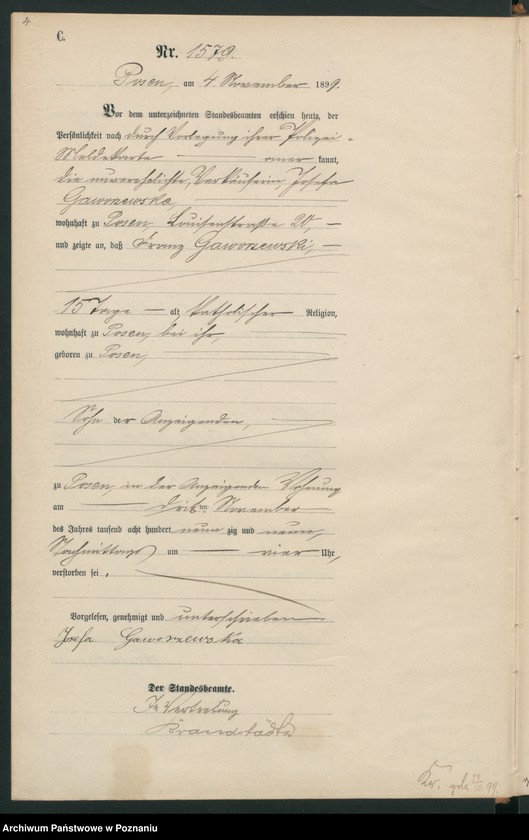 4.
C.
Nr. 1579.
Posen, am 4 November 1899.
Vor dem unterzeichneten Standesbeamten erschien heute, der
Persönlichkeit nach durch Vorlegung ihrer Polizei-
Meldekarte kannt,
die unverehelichte, Verkäuferin, Josefa
Gaworzewska
wohnhaft zu Posen, Louisenstraße 20,
und zeigte an, daß Franz Gaworzewski,
15 Tage alt, katholischer Religion,
wohnhaft zu Posen, bei ihr,
geboren zu Posen,
Sohn der Anzeigenden,
zu Posen, in der Anzeigenden Wohnung
am dritten November
des Jahres tausend acht hundert neunzig und neun,
Nachmittags um vier Uhr,
verstorben sei.
Vorgelesen, genehmigt und unterschrieben
Josefa Gaworzewska
Der Standesbeamte.
In Vertretung
Brandstädter
Archiwum Państwowe w Poznaniu